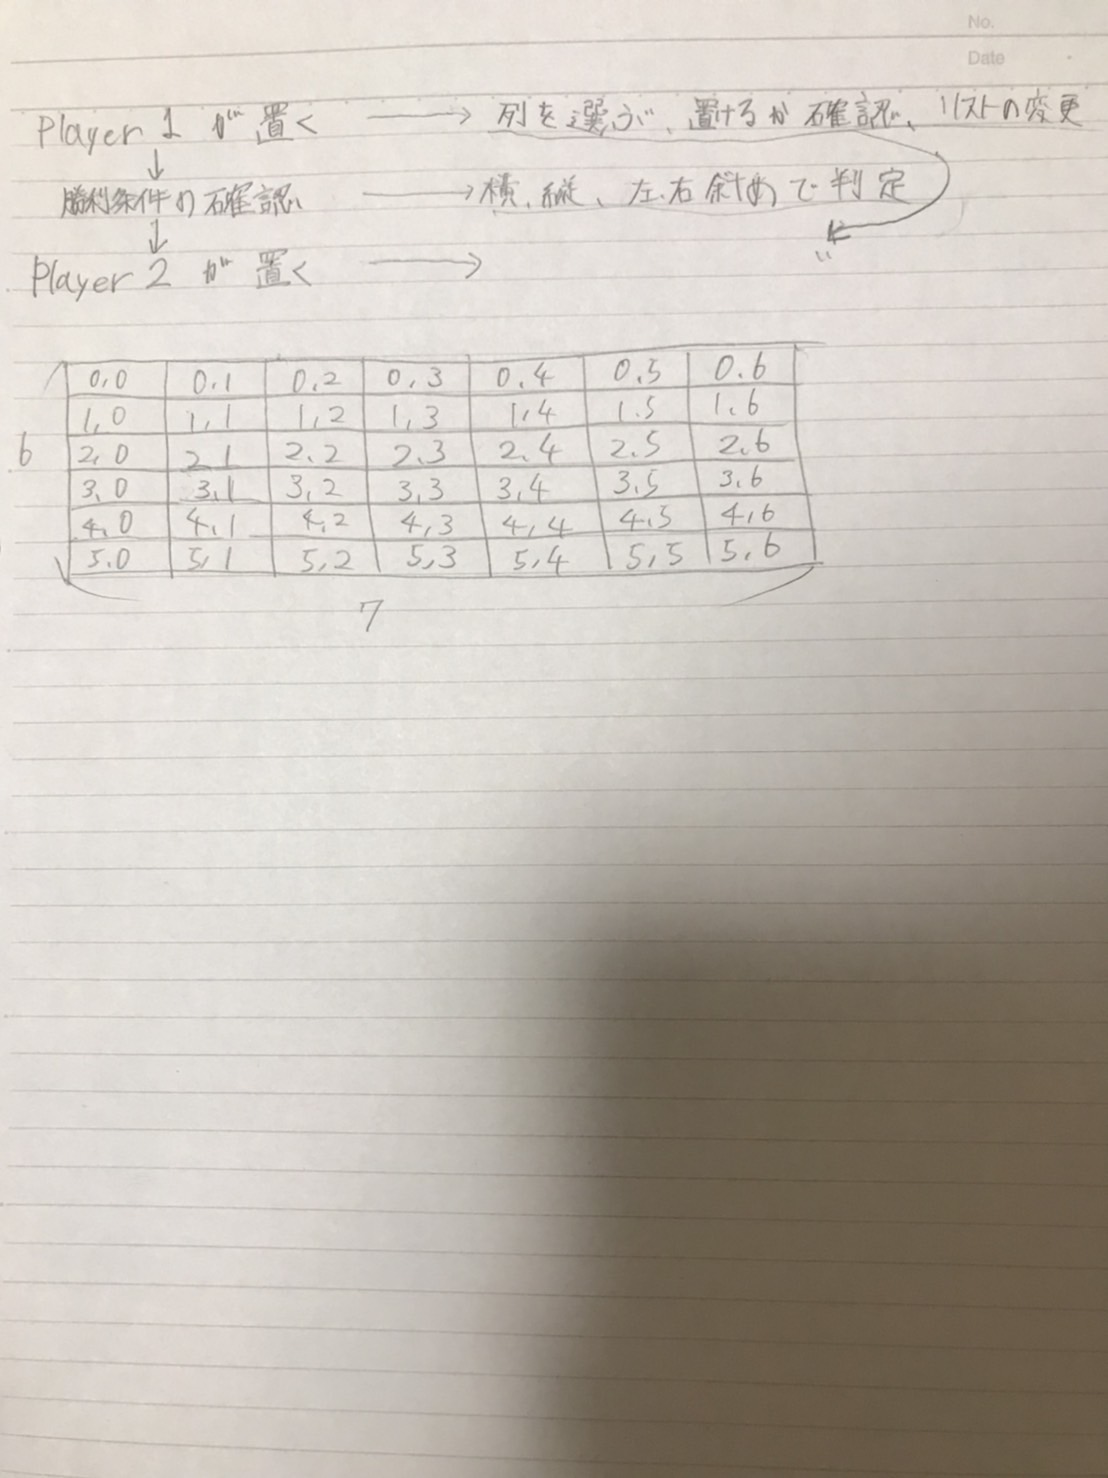 No.
Date
Player 1 が 置く → 列を選ぶ、置けるか 確認、リストの変更
↓
勝利条件の確認 → 横、縦、左、右 斜めで判定
↓
Player 2 が 置く → 〃
0,0 0.1 0.2 0,3 0.4 0.5 0.6
1,0 1,1 1,2 1,3 1,4 1.5 1.6
6 2,0 2.1 2.2 2.3 2.4 2.5 2.6
3,0 3,1 3,2 3,3 3,4 3.5 3.6
4,0 4,1 4,2 4,3 4,4 4,5 4,6
5.0 5,1 5,2 5,3 5,4 5,5 5,6
7